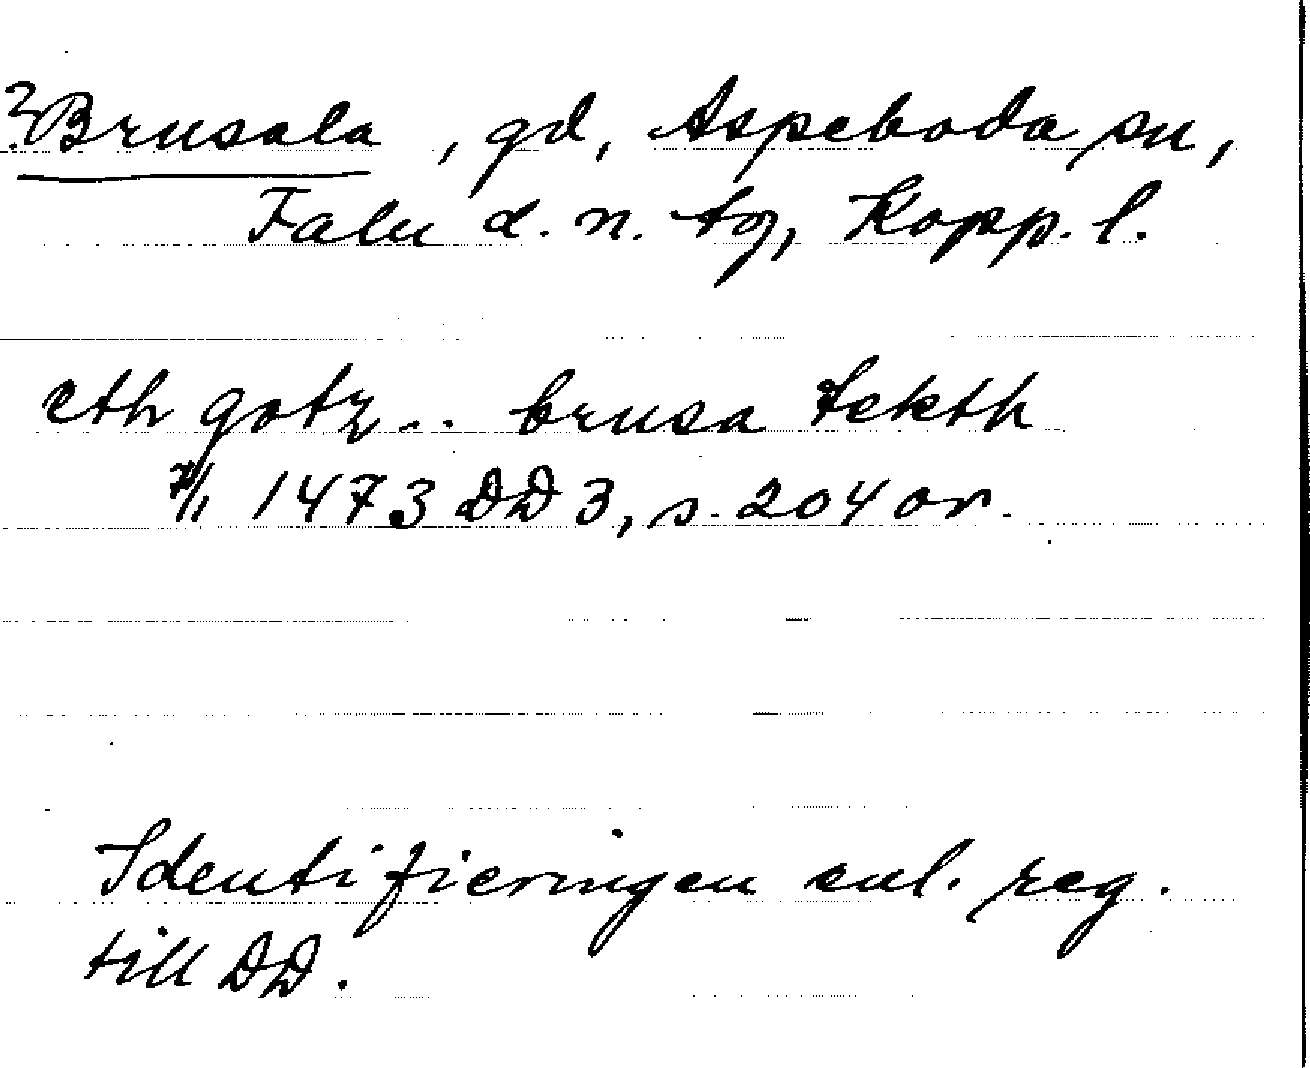 ? Brusala, gd, Aspeboda sn,
Falu d. n. tg, Kopp. l.
eth gotz .. brusa tekth
7/1 1473 DD 3, s. 204 or.
Identifieringen enl. reg.
till DD.